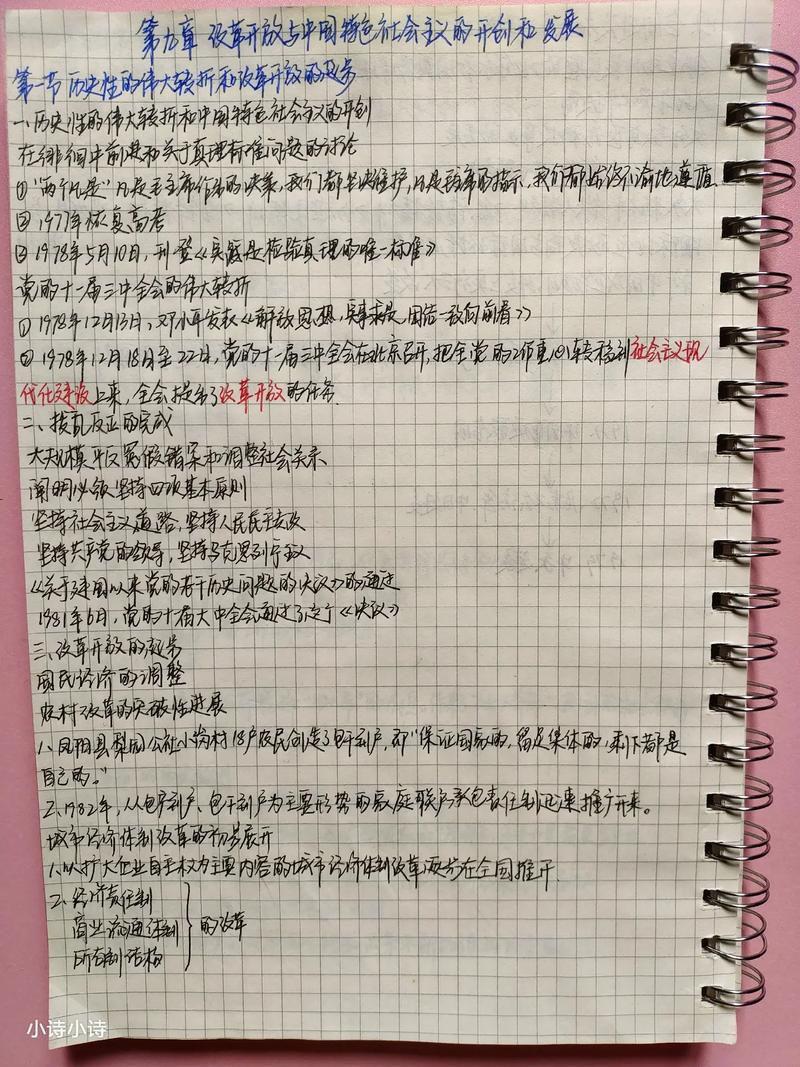 第九章 改革开放与中国特色社会主义的开创和发展
第一节 历史性的伟大转折和改革开放的起步
一、历史性的伟大转折和中国特色社会主义的开创
在徘徊中前进和关于真理标准问题的讨论
①"两个凡是"凡是毛主席作出的决策,我们都坚决维护,凡是毛主席的指示,我们都始终不渝地遵循
②1977年恢复高考
③1978年5月10日,刊登《实践是检验真理的唯一标准》
党的十一届三中全会的伟大转折
①1978年12月13日,邓小平发表《解放思想,实事求是,团结一致向前看》
②1978年12月18日至22日,党的十一届三中全会在北京召开,把全党的工作重心转移到社会主义现
代化建设上来,全会提出了改革开放的任务.
二、拨乱反正的完成
大规模平反冤假错案和调整社会关系
阐明必须坚持四项基本原则
坚持社会主义道路,坚持人民民主专政
坚持共产党的领导,坚持马克思列宁主义
《关于建国以来党的若干历史问题的决议》的通过
1981年6月,党的十一届六中全会通过了这个《决议》
三、改革开放的起步
国民经济的调整
农村改革的突破性进展
1、凤阳县梨园公社小岗村18户农民创造了包干到户,即"保证国家的,留足集体的,剩下都是
自己的。"
2、1982年,从包产到户、包干到户为主要形势的家庭联产承包责任制迅速推广开来。
城市经济体制改革的初步展开
1、以扩大企业自主权为主要内容的城市经济体制改革逐步在全国推开.
2、经济责任制
商业流通体制 的改革
所有制结构
小诗小诗